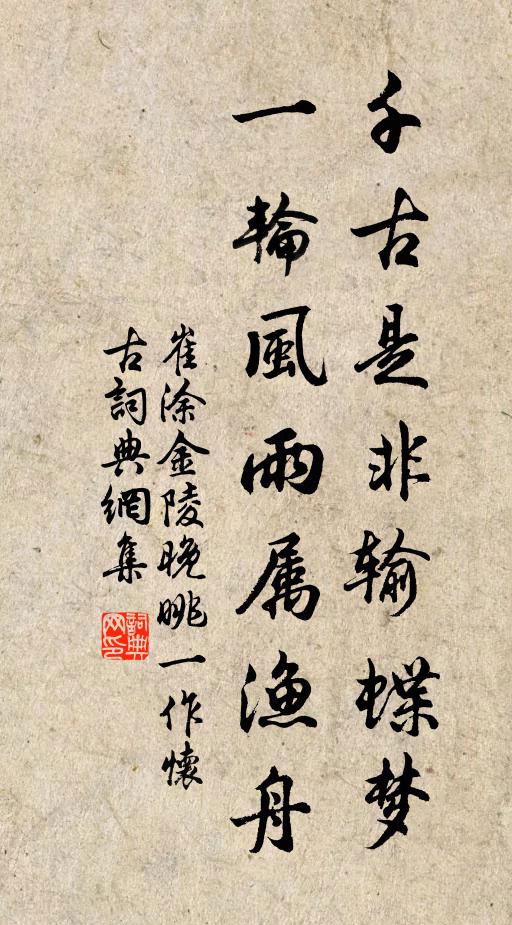 千古是非输蝶梦
一輪風雨属漁舟
崔涂金陵晚眺一作懷
古詞典網集
詞典网印